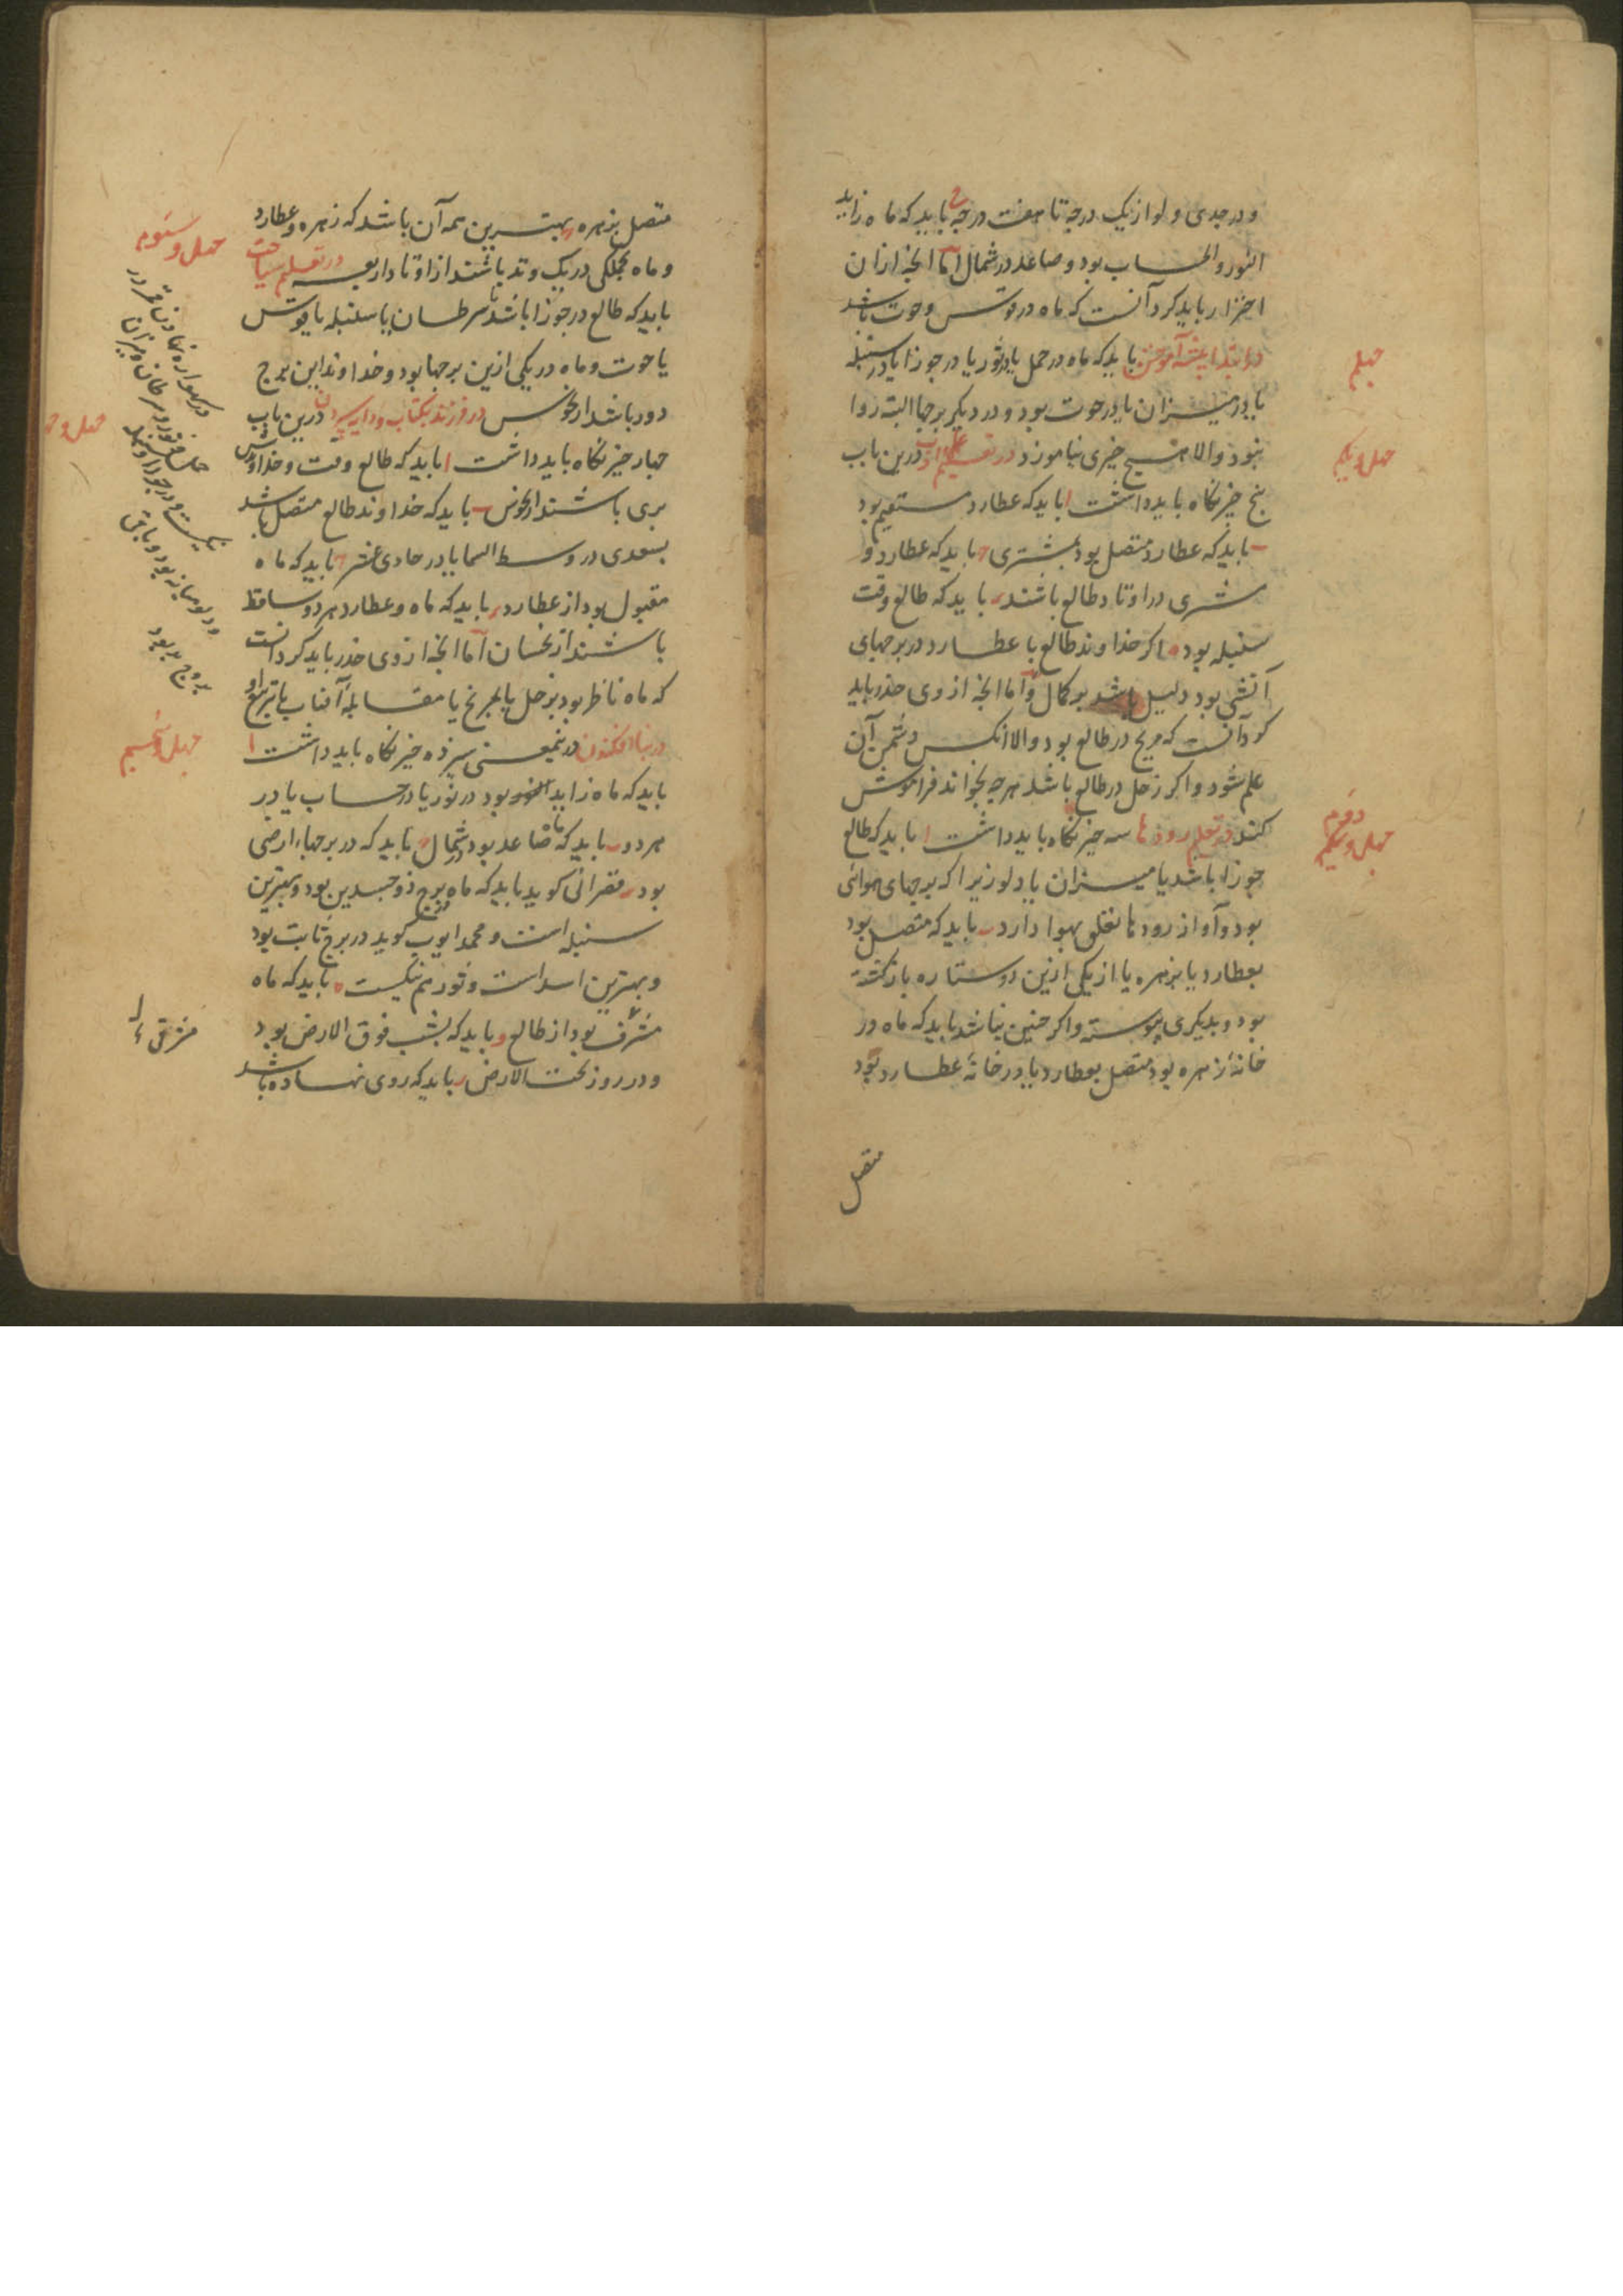 و در جدی و لو از یک درجه تا هفت درجه ح باید که ماه زاید
النور والحساب بود و صاعد در شمال اما آنچه از آن
احتراز باید کرد آنست که ماه در قوس و حوت باشد
در ابتدا پیشه آموختن باید که ماه در حمل یا در ثور یا در جوزا یا در سنبله
یا در میزان یا در حوت بود و در دیگر برجها البته روا
نبود والا هیچ چیزی نیاموزد در تعلیم علم و ادب درین باب
پنج چیز نگاه باید داشت ا باید که عطارد مستقیم بود
ب باید که عطارد متصل بود بمشتری ج باید که عطارد و
مشتری در اوتاد طالع باشند د باید که طالع وقت
سنبله بود ه اگر خداوند طالع با عطارد در برجهای
آتشی بود دلیل باشد بر کمال و اما آنچه از وی حذر باید
کرد آنست که مریخ در طالع بود والا انکس دشمن آن
علم شود و اگر زحل در طالع باشد هرچه بخواند فراموش
کند در تعلیم رودها سه چیز نگاه باید داشت ا باید که طالع
جوزا باشد یا میزان یا دلو زیرا که برجهای هوائی
بود و آواز رودها تعلق بهوا دارد ب باید که متصل بود
بعطارد یا بزهره یا از یکی ازین دو ستاره بازگشته
بود و بدیگری پیوسته و اگر چنین نباشد باید که ماه در
خانهٔ زهره بود متصل بعطارد یا در خانهٔ عطارد بود
متصل
چهلم
چهل و یکم
چهل و دوم
متصل بزهره و بهترین همه آن باشد که زهره و عطارد
و ماه بجملگی در یک وتد باشند از اوتاد اربعه در تعلیم سباحت
باید که طالع در جوزا باشد یا سرطان یا سنبله یا قوس
یا حوت و ماه در یکی ازین برجها بود و خداوند این برج
دور باشد از نحوس در فرزند بکتاب و دایه سپردن درین باب
چهار چیز نگاه باید داشت ا باید که طالع وقت و خداوندش
بری باشند از نحوس ب باید که خداوند طالع متصل باشد
بسعدی در وسط السما یا در حادی عشر ج باید که ماه
مقبول بود از عطارد د باید که ماه و عطارد هر دو ساقط
باشند از نحسان اما آنچه از وی حذر باید کرد آنست
که ماه ناظر بود بزحل یا بمریخ یا مقابلهٔ آفتاب یا تربیع او
در بنا افکندن درینمعنی سیزده چیز نگاه باید داشت ا
باید که ماه زاید النور بود در نور یا در حساب یا در
هر دو ب باید که ماه صاعد بود در شمال ج باید که در برجهاء ارضی
بود د قصرانی گوید باید که ماه در برج ذو جسدین بود و بهترین
سنبله است و محمد ایوب گوید در برج ثابت بود
و بهترین اسد است و ثور هم نیکست ه باید که ماه
مشرف بود از طالع و باید که بشب فوق الارض بود
و در روز تحت الارض ز باید که روی نهاده باشد
چهل و سیوم
در گهواره نهادن قمر در
چهل و
نیکست و در جوزا و سنبله
و دلو میانه بود و باقی
بروج بد بود
مشرقی